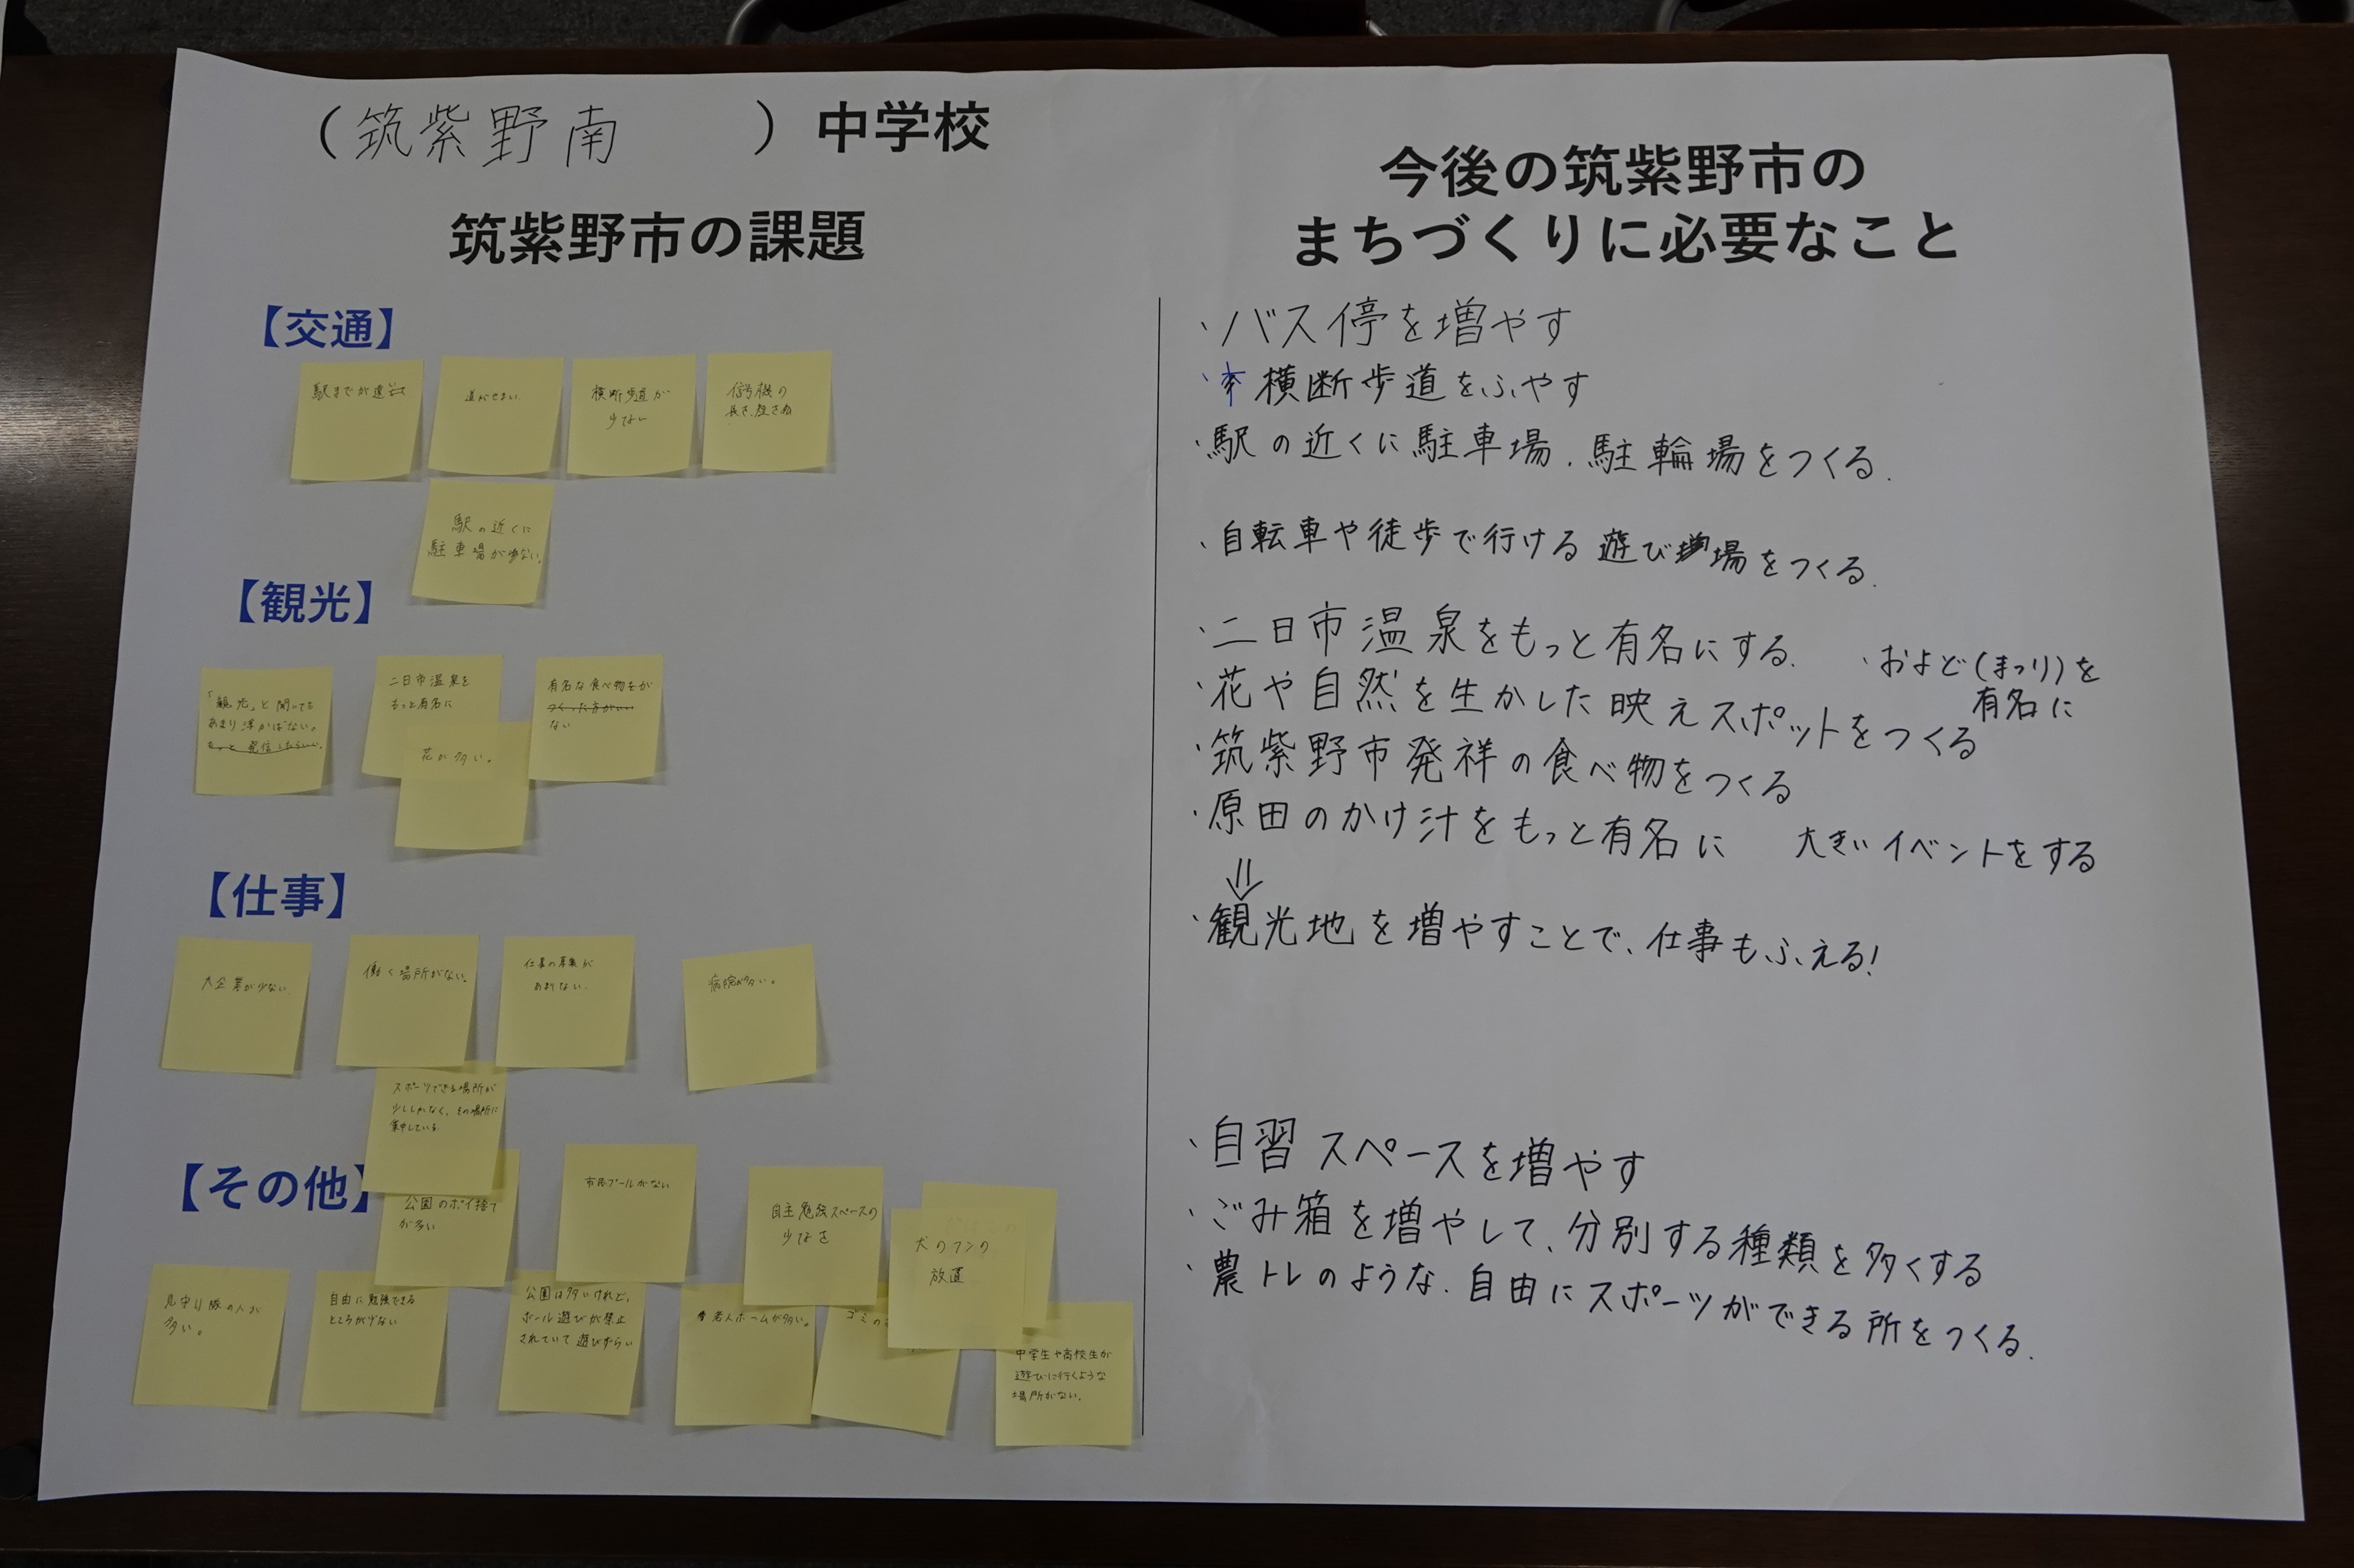 （筑紫野南）中学校
筑紫野市の課題
【交通】
駅までが遠い
道がせまい
横断歩道が
少ない
信号機の
長さ、短さ
駅の近くに
駐車場が少ない。
【観光】
「観光」と聞いても
あまり浮かばない。
もっと発信したらいい。
二日市温泉を
もっと有名に
花が多い。
有名な食べ物が
つくった方がいい
ない
【仕事】
大企業が少ない
働く場所がない。
仕事の募集が
あまりない
病院が多い。
スポーツできる場所が
少ししかなく、その場所に
集中している
【その他】
公園のポイ捨て
が多い
市民プールがない
自主勉強スペースの
少なさ
犬のフンの
放置
見守り隊の人が
多い。
自由に勉強できる
ところが少ない
公園は多いけれど、
ボール遊びが禁止
されていて遊びずらい
老人ホームが多い。
ゴミの
中学生や高校生が
遊びに行くような
場所がない。
今後の筑紫野市の
まちづくりに必要なこと
・バス停を増やす
・横断歩道をふやす
・駅の近くに駐車場、駐輪場をつくる。
・自転車や徒歩で行ける遊び場をつくる。
・二日市温泉をもっと有名にする。
・およど(まつり)を
有名に
・花や自然を生かした映えスポットをつくる
・筑紫野市発祥の食べ物をつくる
・原田のかけ汁をもっと有名に
大きいイベントをする
⇓
・観光地を増やすことで、仕事もふえる!
・自習スペースを増やす
・ごみ箱を増やして、分別する種類を多くする
・農トレのような、自由にスポーツができる所をつくる。